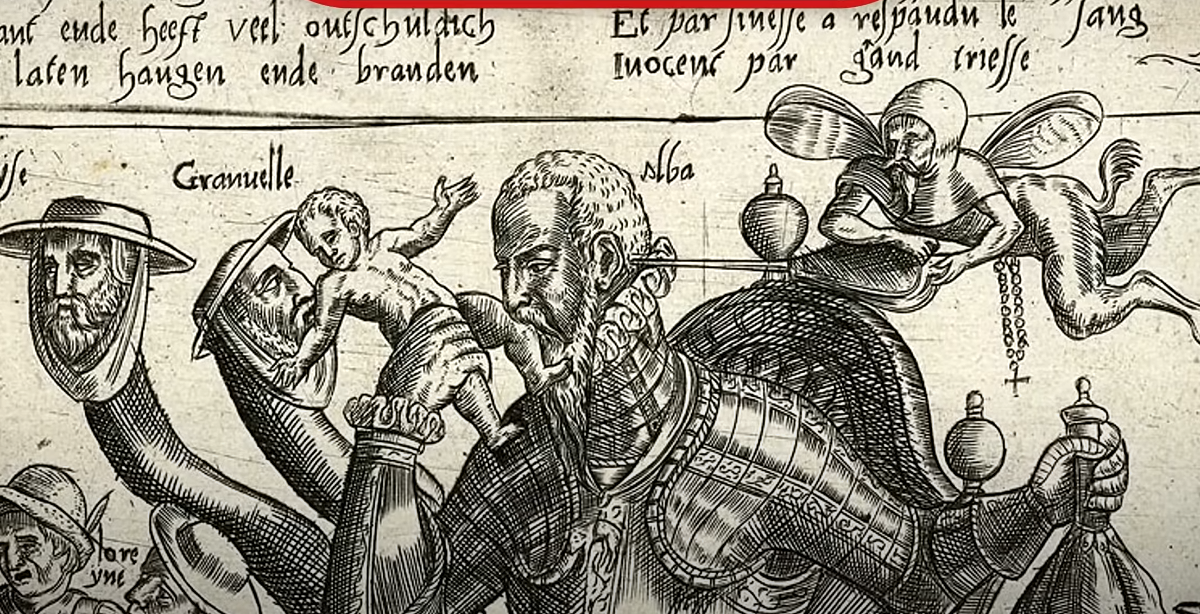 ende heeft veel outschuldich
laten hangen ende branden
Et par finesse a respandu le sang
Inocent par gand triesse
Granvelle
Alba